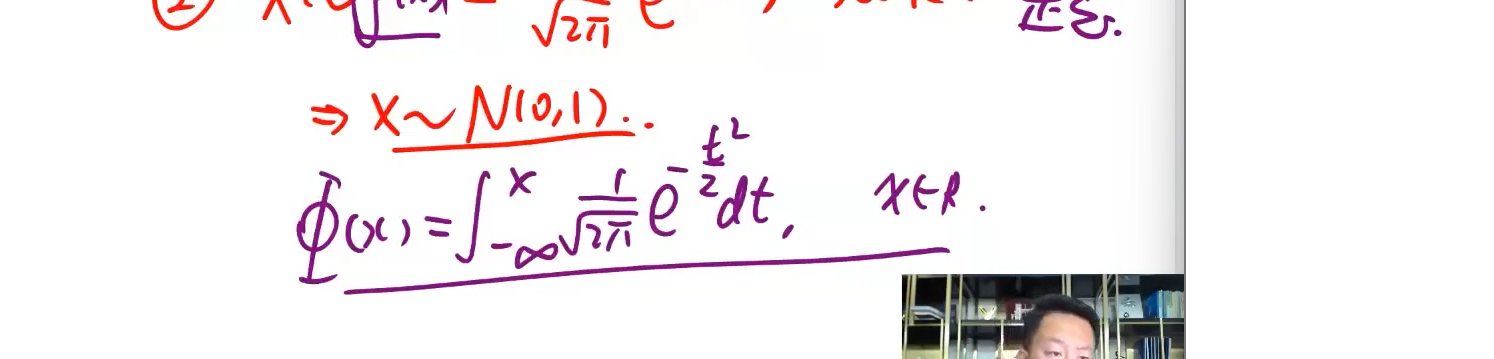 ② X √2π e
⇒ X~N(0,1)..
Φ(x)=∫_{-∞}^{x} 1/√2π e^{-t²/2}dt, x∈R.